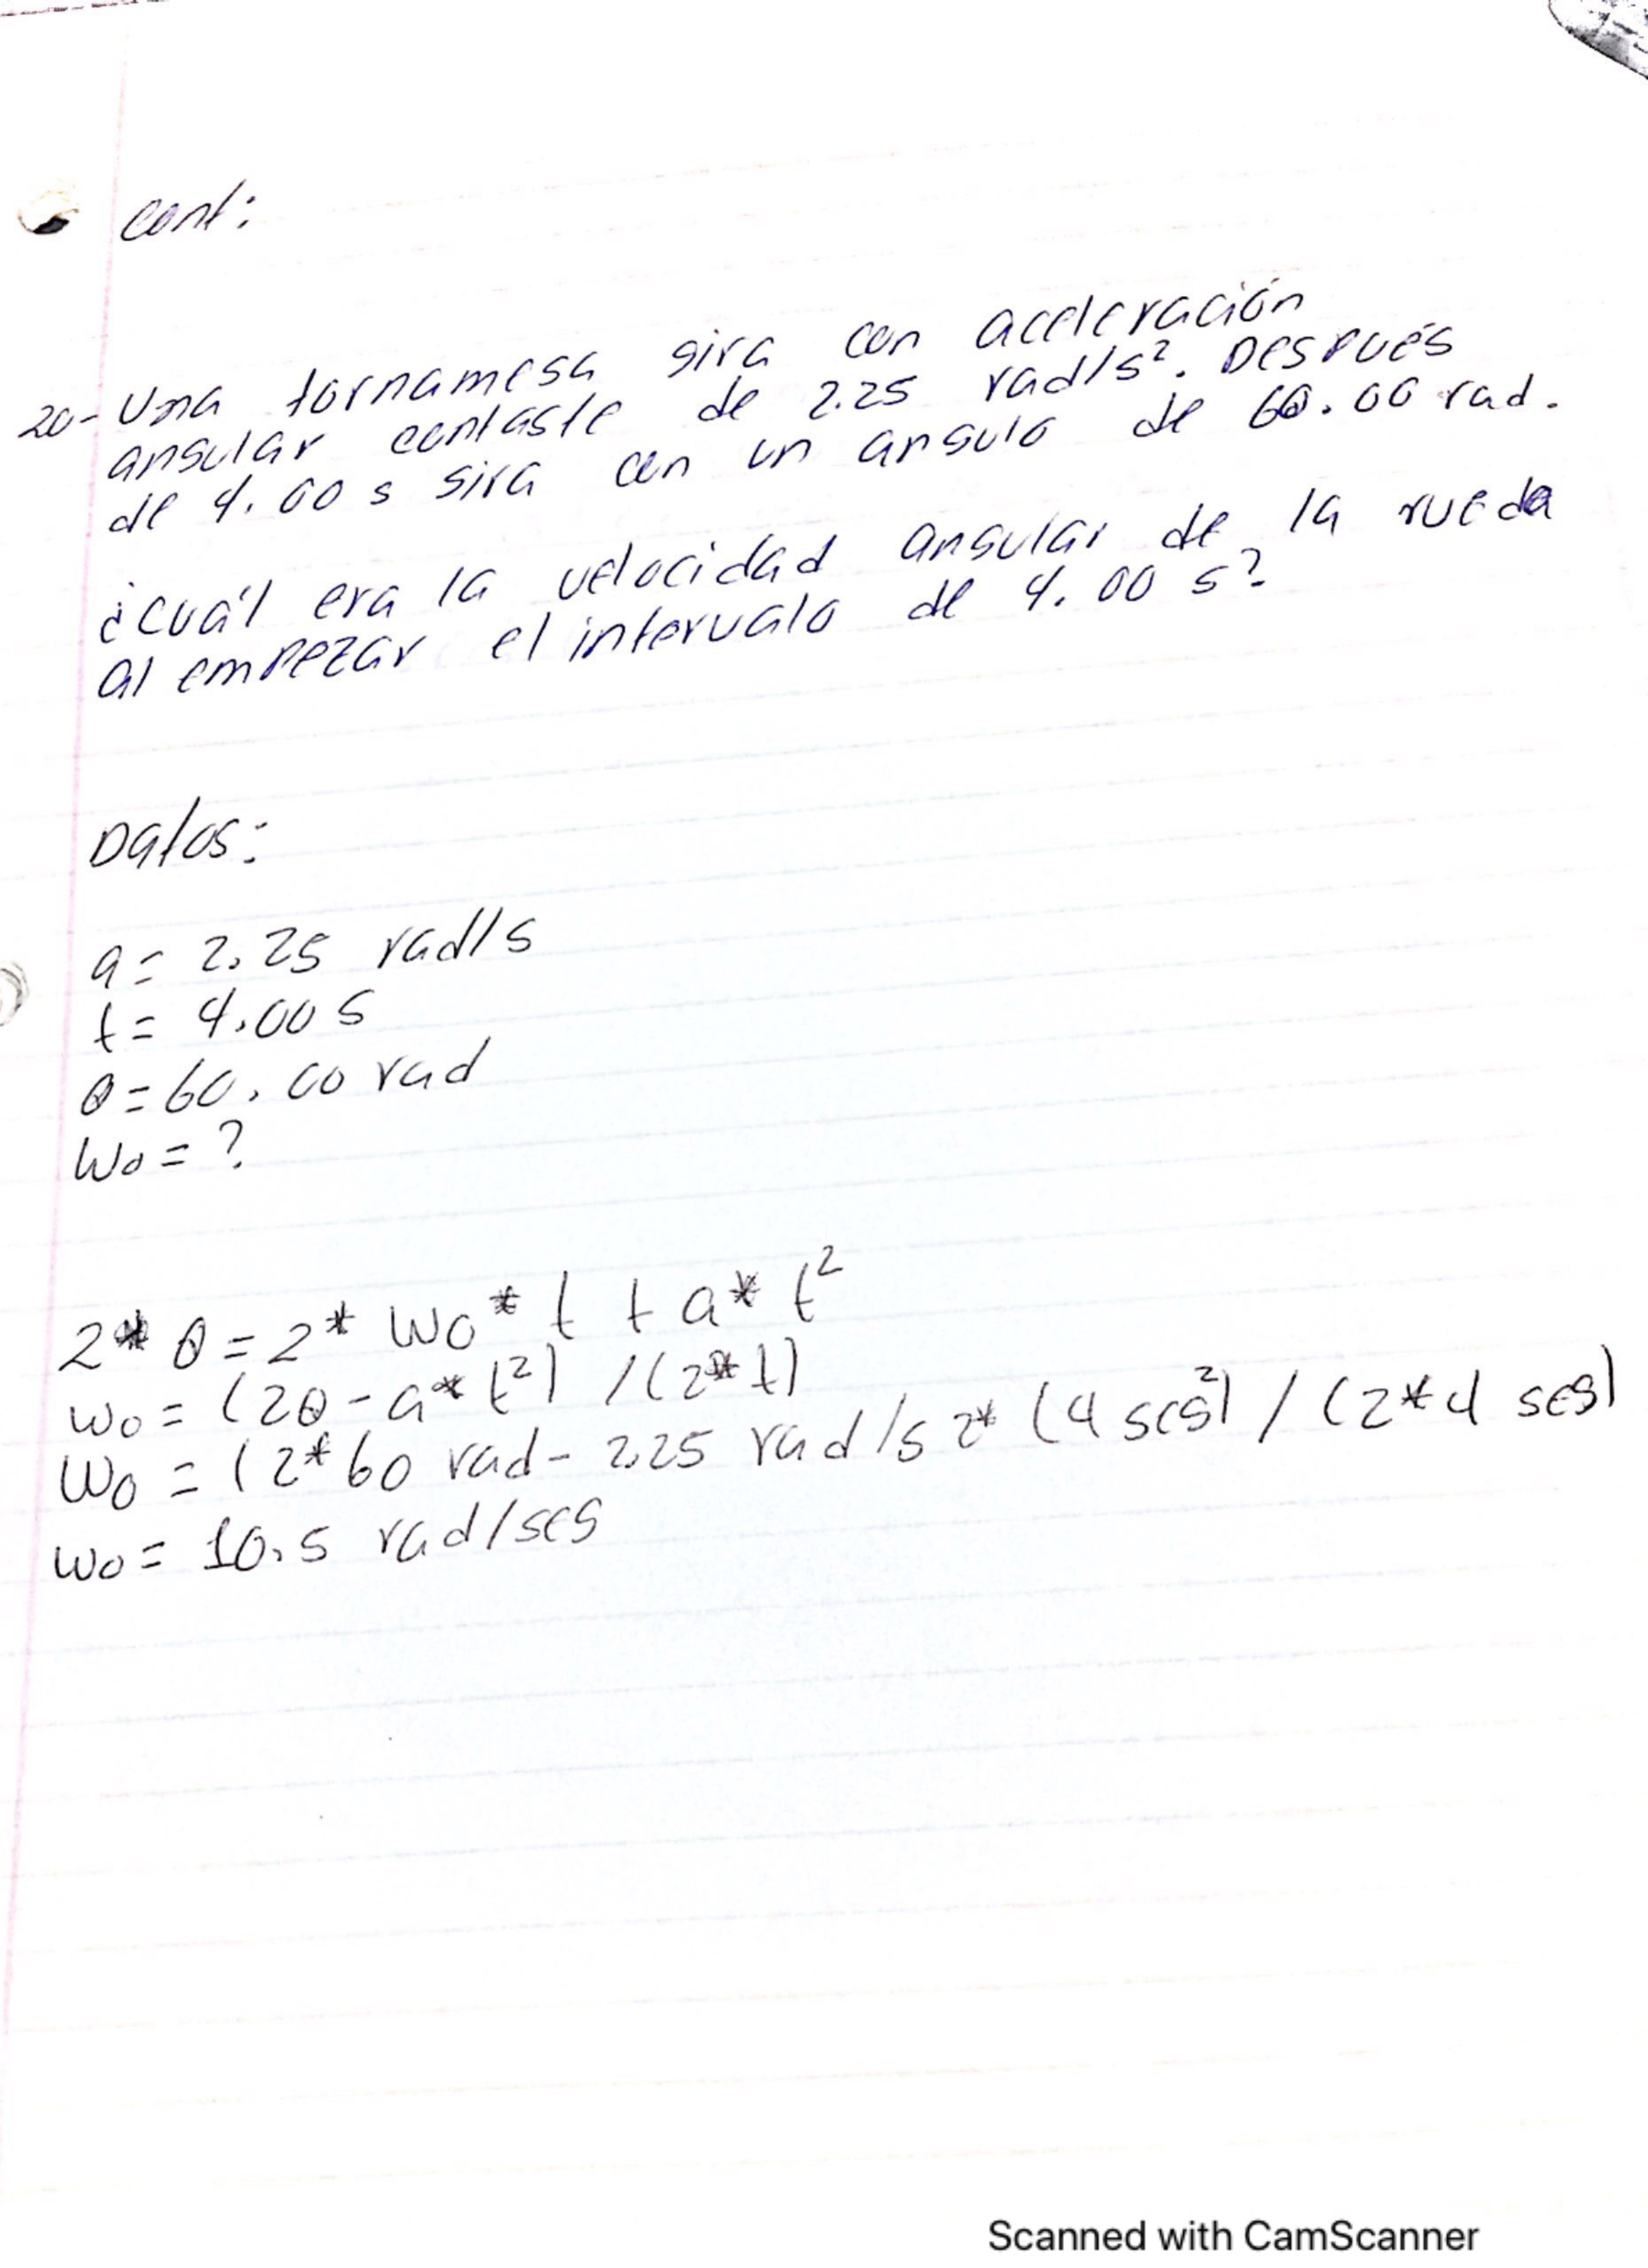 cont:
20- Una tornamesa gira con aceleración
angular contaste de 2.25 rad/s². Después
de 4.00 s gira con un angulo de 60.00 rad.
¿cuál era la velocidad angular de la rueda
al empezar el intervalo de 4.00 s?
Datos:
a= 2.25 rad/s
t= 4.00 s
θ=60.00 rad
Wo= ?
2* θ = 2* Wo* t + a* t²
Wo = (2θ - a* t²) / (2* t)
Wo = (2*60 rad - 2.25 rad/s 2* (4 seg²) / (2*4 seg)
Wo = 10.5 rad/seg
Scanned with CamScanner